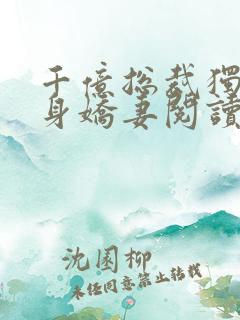 千億總裁獨
身嬌妻閱讀
沈園柳
未經同意禁止轉載